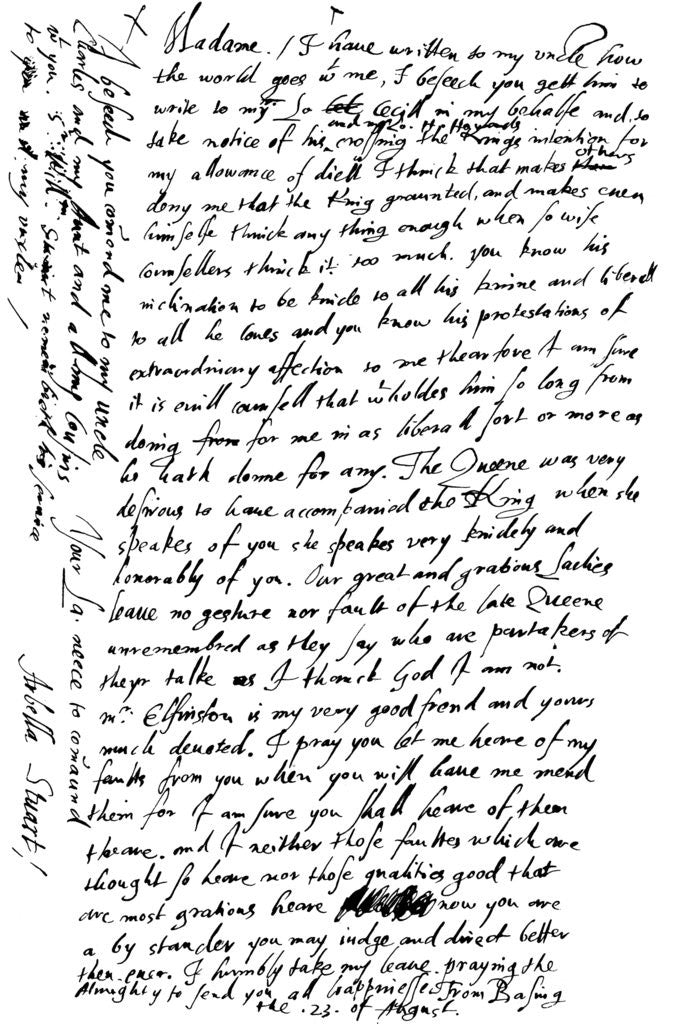 Madame. / I have written to my uncle how
the world goes wt me, I beseech you gett him to
write to my Lo Cecill in my behalfe and, so
and my Lo. H. Howards
take notice of his crossing the Kings intention for
others
my allowance of diett I thinck that makes
deny me that the King graunted, and makes even
himselfe thinck any thing enough when so wise
counsellers thinck it too much. you know his
inclination to be kinde to all his kinne and liberall
to all he loves and you know his protestations of
extraordinary affection to me thearfore I am sure
it is evill counsell that wholdes him so long from
doing for me in as liberall sort or more as
he hath donne for any. The Queene was very
desirous to have accompanied the King when she
speakes of you she speakes very kindely and
honorably of you. Our great and gratious Ladies
leave no gesture nor fault of the late Queene
unremembred as they say who are partakers of
theyr talke as I thanck God I am not.
mr. Elfinston is my very good frend and yours
much devoted. I pray you let me heare of my
faults from you when you will have me mend
them for I am sure you shall heare of them
theare. and I neither those faultes which are
thought so heare nor those qualities good that
are most gratious heare now you are
a by stander you may judge and direct better
then ever. I humbly take my leave praying the
Almighty to send you all happinesse From Basing
the .23. of August.
I beseech you comend me to my uncle
Charles and my Aunt and all my cousins
wt you.
Your La. neece to comaund
Arbella Stuart /